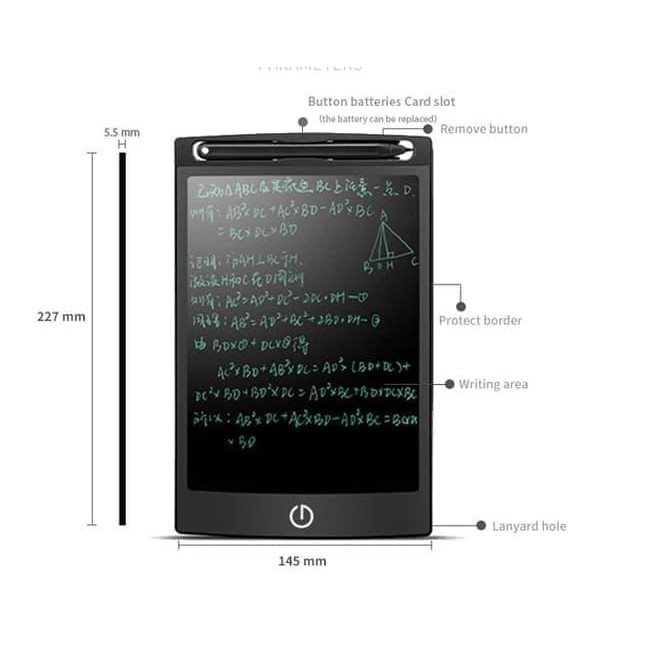 PARAMETERS
Button batteries Card slot
(the battery can be replaced)
Remove button
5.5 mm
已知△ABC及其底边BC上任意一点D.
则有: AB²×DC+AC²×BD-AD²×BC
= BC×DC×BD
A
B D H C
证明: 作AH⊥BC于H,
则有: AC²=AD²+DC²-2DC·DH—①
同理: AB²=AD²+BC²+2BD·DH—②
由 BD×①+DC×②得
AC²×BD+AB²×DC=AD²×(BD+DC)+
DC²×BD+BD²×DC=AD²×BC+BD×DC×BC
所以: AB²×DC+AC²×BD-AD²×BC=BC×
×BD
227 mm
Protect border
Writing area
Lanyard hole
145 mm